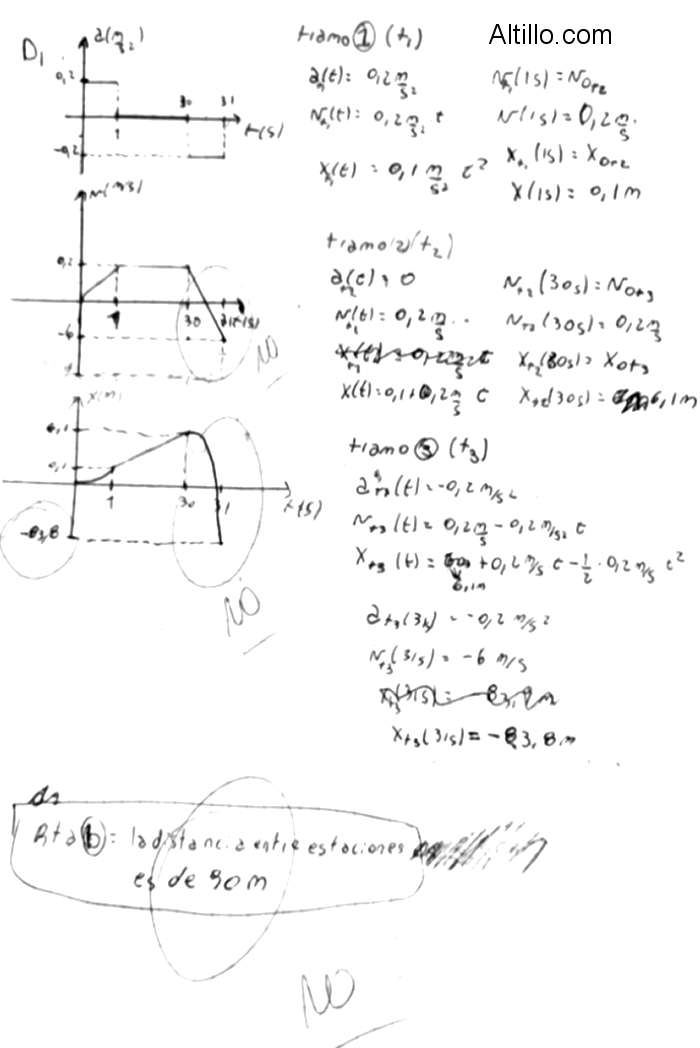 Altillo.com
D1
a(m/s2)
0,2
30 31
1
t(s)
-0,2
v(m/s)
0,2
30
t(s)
-6
NO
x(m)
6,1
0,1
1 30 31
t(s)
-83,8
NO
tramo 1 (t1)
a(t) = 0,2 m/s2
v(t) = 0,2 m/s2 t
v(1s) = 0,2 m/s
x(t) = 0,1 m/s2 t2
x(1s) = 0,1 m
tramo 2 (t2)
at2(t) = 0
vt2(30s) = v0t3
v(t) = 0,2 m/s
vt2(30s) = 0,2 m/s
xt2(30s) = x0t3
x(t) = 0,1 + 0,2 m/s t
xt2(30s) = 6,1 m
tramo 3 (t3)
at3(t) = -0,2 m/s2
vt3(t) = 0,2 m/s - 0,2 m/s2 t
xt3(t) = + 0,2 m/s t - 1/2 · 0,2 m/s t2
6,1m
= -0,2 m/s2
vt3(31s) = -6 m/s
xt3(31s) = -83,8 m
Rta b = la distancia entre estaciones
es de 90 m
NO